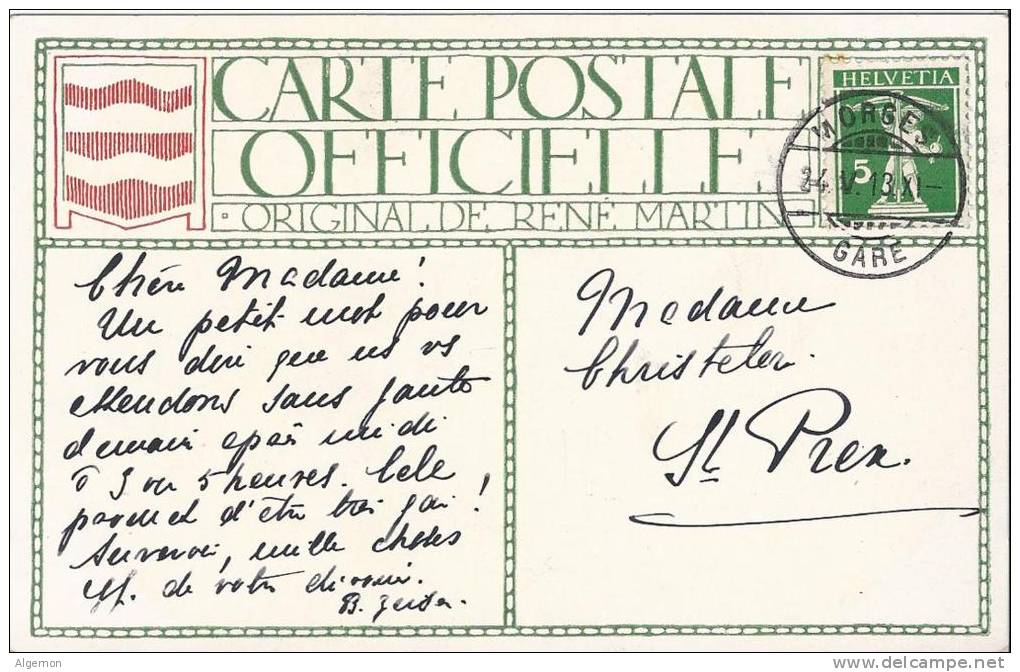 CARTE POSTALE
OFFICIELLE.
· ORIGINAL DE RENÉ MARTIN
HELVETIA
5
MORGES
24.V.13.XI–
GARE
Chère Madame!
Un petit mot pour
vous dire que ns vs
attendons sans faute
demain après midi
à 3 ou 5 heures. Cele
promet d'être très gai!
Au revoir, mille choses
aff. de votre
B.
Madame
Christeler.
St Prex.
Algemon
www.delcampe.net